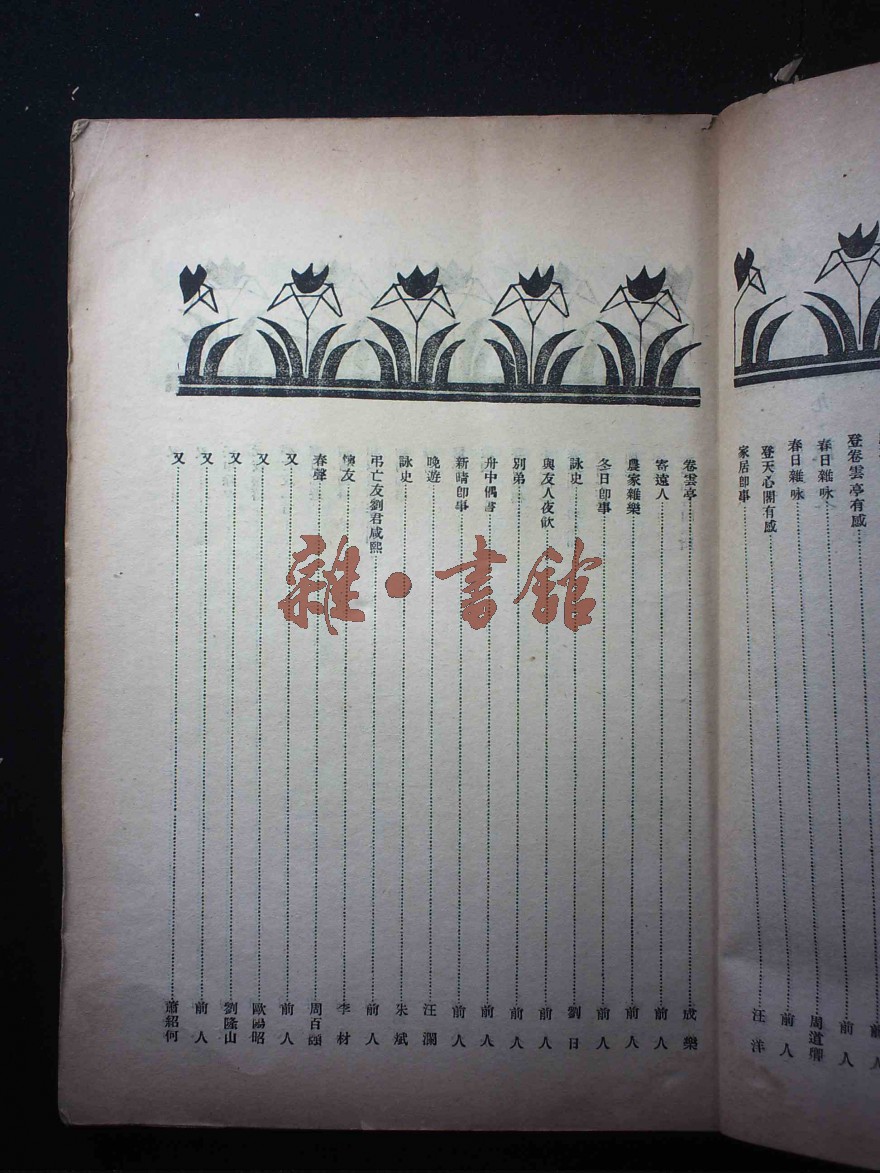 登卷雲亭有感……前人
春日雜咏……前人
春日雜咏……周道卿
登天心閣有感……前人
家居卽事……汪洋
卷雲亭……成樂
寄遠人……前人
農家雜樂……前人
冬日卽事……前人
詠史……劉日
與友人夜飲……前人
別弟……前人
舟中偶書……前人
新晴卽事……前人
晚遊……汪瀾
詠史……朱斌
弔亡友劉君咸熙……前人
友……李材
春聲……周百頤
又……前人
又……歐陽昭
又……劉隆山
又……前人
又……蕭紹何
雜·書館